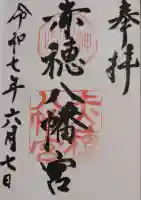 奉拝
赤穂八幡宮
令和七年六月七日